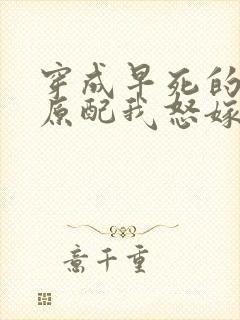 穿成早死的
原配我怒嫁
意千重